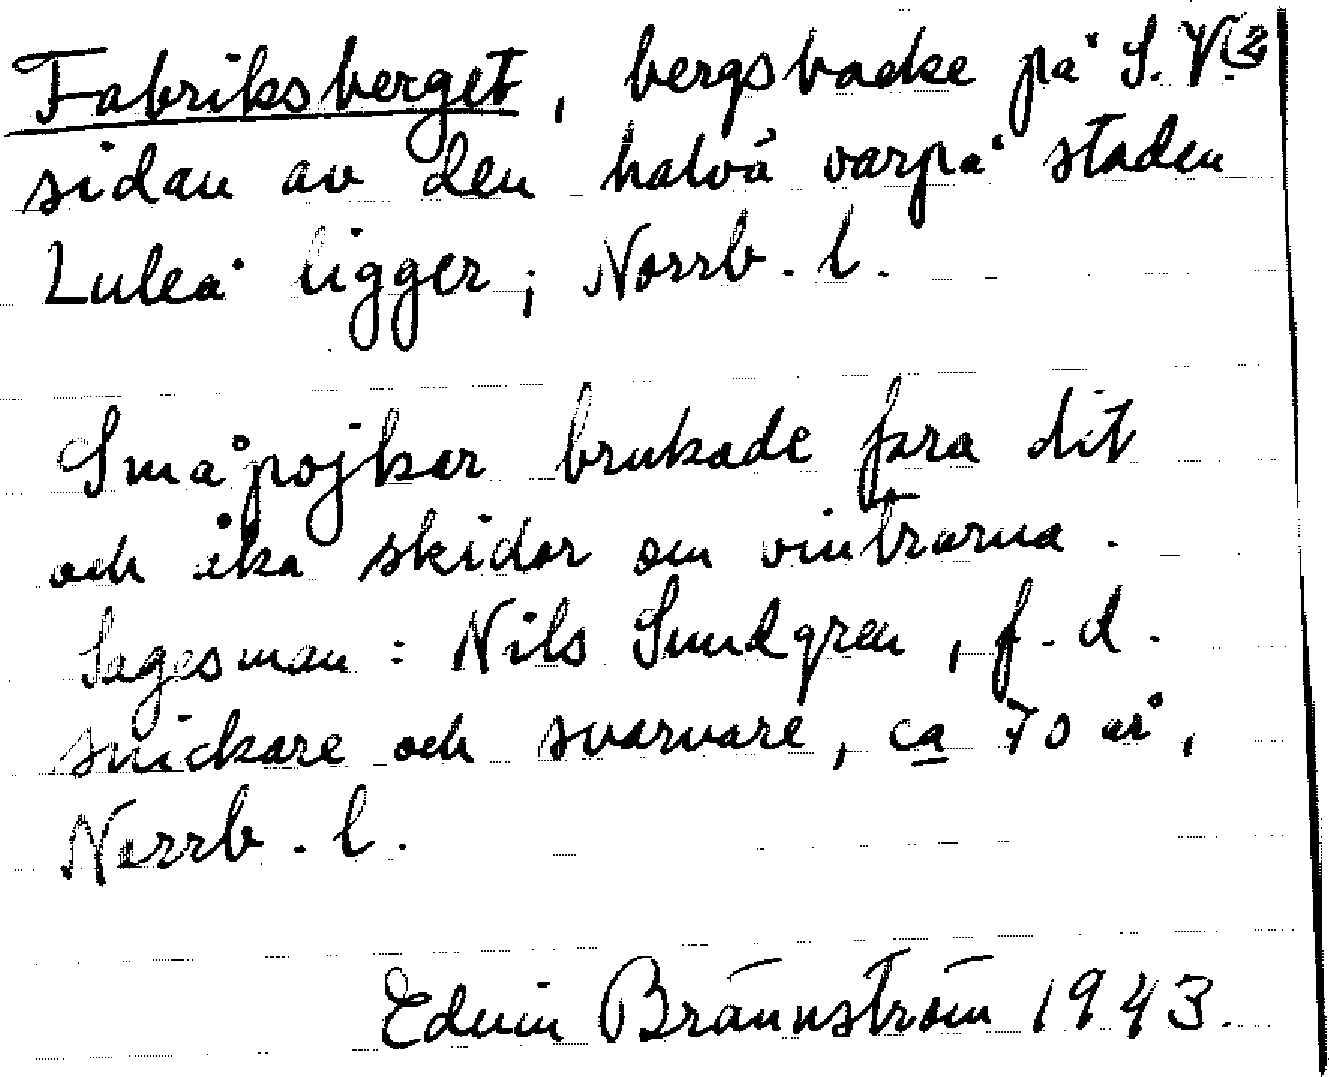 Fabriksberget, bergsbacke på S.V. (2
sidan av den halvö varpå staden
Luleå ligger; Norrb. l.
Småpojkar brukade fara dit
och åka skidor om vintrarna.
Sagesman: Nils Sundgren, f.d.
snickare och svarvare, ca 70 år,
Norrb. l.
Edvin Brännström 1943.